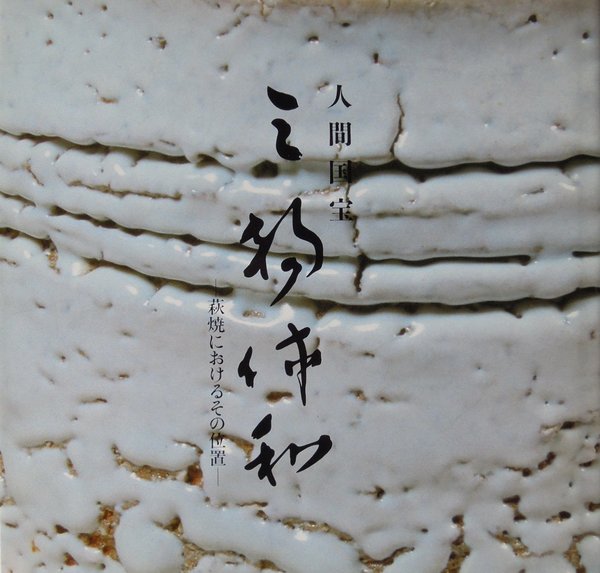 人間国宝
三輪休和
—萩焼におけるその位置—